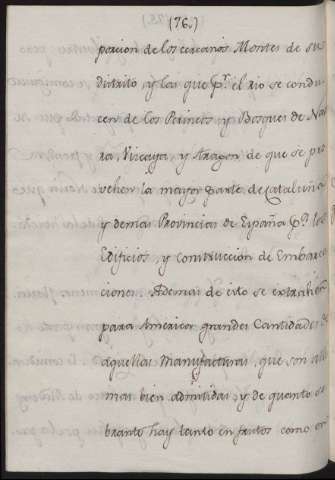 (76.)
porcion de los cercanos Montes de su
distrito, y las que pr. el rio se condu
cen de los Perineos y Bosques de Na
ra, Vicaya, y Aragon de que se pro
vehen la mayor parte de Cataluña
y demas Provincias de España pa. los
Edificios, y construccion de Embarca
ciones. Ademas de esto se extrahen
para America grandes Cantidades de
aquellas Manufacturas, que son alli
mas bien admitidas, y de quanto so
brante hay tanto en frutos como en